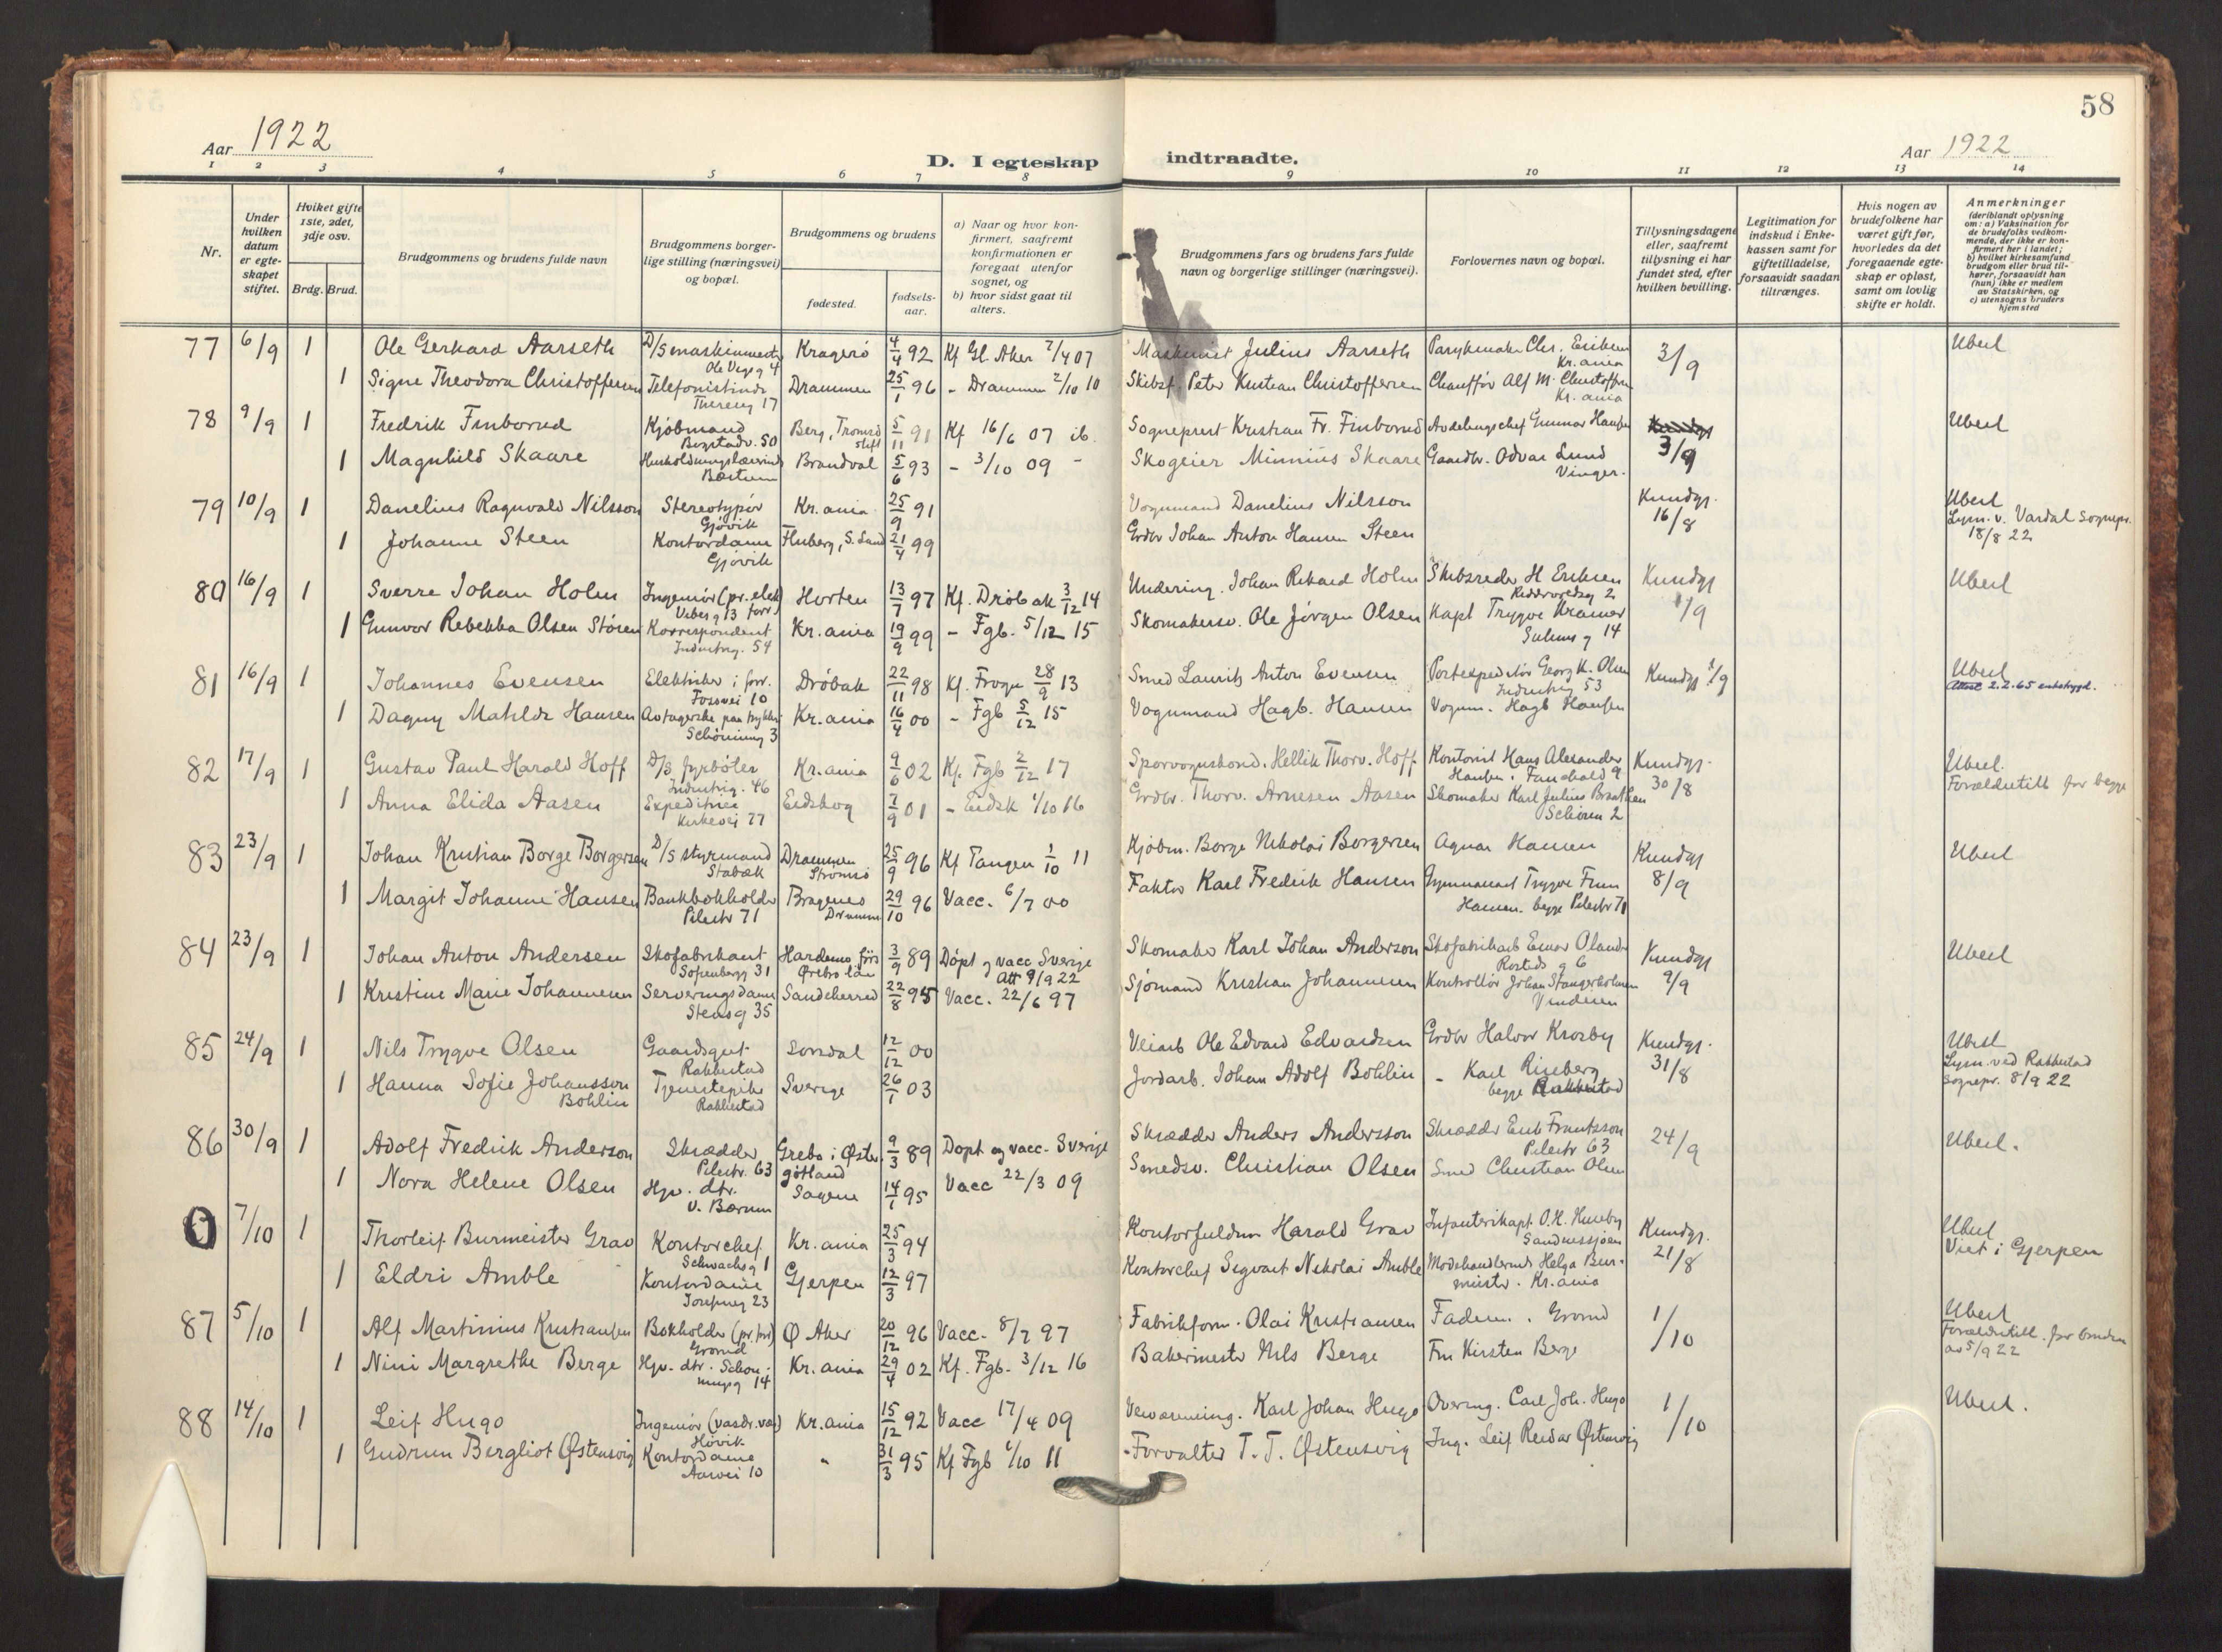 58
Aar 1922
D. I egteskap indtraadte.
Aar 1922
1 2 3 4 5 6 7 8 9 10 11 12 13 14
Nr.
Under hvilken datum er egteskapet stiftet.
Hviket gifte 1ste, 2det, 3dje osv.
Brdg. Brud.
Brudgommens og brudens fulde navn
Brudgommens borgerlige stilling (næringsvei) og bopæl.
Brudgommens og brudens
fødested.
fødselsaar.
a) Naar og hvor konfirmert, saafremt konfirmationen er foregaat utenfor sognet, og
b) hvor sidst gaat til alters.
Brudgommens fars og brudens fars fulde navn og borgerlige stillinger (næringsvei).
Forlovernes navn og bopæl.
Tillysningsdagene eller, saafremt tillysning ei har fundet sted, efter hvilken bevilling.
Legitimation for indskud i Enkekassen samt for giftetilladelse, forsaavidt saadan tiltrænges.
Hvis nogen av brudefolkene har været gift før, hvorledes da det foregaaende egteskap er opløst, samt om lovlig skifte er holdt.
Anmerkninger
(deriblandt oplysning om: a) Vaksination for de brudefolks vedkommende, der ikke er konfirmert her i landet; b) hvilket kirkesamfund brudgom eller brud tilhører, forsaavidt han (hun) ikke er medlem av Statskirken, og c) utensogns bruders hjemsted
77 6/9 1 Ole Gerhard Aarseth D/S maskinmester Kragerø 4/4 92 Kf Gl. Aker 7/4 07 Maskinist Julius Aarseth Parykmaker Chr. Eriksen 3/9 Uberl
Ole Vigsg 4 Kr.ania
1 Signe Theodora Christoffersen Telefonistinde Drammen 25/1 96 - Drammen 2/10 10 Skibsf. Peter Kristian Christoffersen Chauffør Alf M. Christoffersen
Theresg 17 Kr. ania
78 9/9 1 Fredrik Finborud Kjøbmand Berg, Tromsø stift 5/11 91 Kf 16/6 07 ib. Sogneprest Kristian Fr. Finborud Avdelingschef Gunnar Hansen 3/9 Uberl
Bogstadv. 50
1 Magnhild Skaare Husholdningslærerinde Brandval 5/6 93 - 3/10 09 - Skogeier Minnius Skaare Gaardbr. Odvar Lund
Bærum Vinger.
79 10/9 1 Danelius Ragnvald Nilsson Stereotypør Kr.ania 25/9 91 Vognmand Danelius Nilsson Kundgj. 16/8 Uberl
Gjøvik Lysn. v. Vardal Sognepr. 18/8 22
1 Johanne Steen Kontordame Fluberg, S. Land 21/4 99 Grdbr Johan Anton Hansen Steen
Gjøvik
80 16/9 1 Sverre Johan Holm Ingeniør (pr. elek Horten 13/7 97 Kf. Drøbak 3/12 14 Undering. Johan Rikard Holm Skibsreder H Eriksen Kundgj 1/9 Uberl
Vibes g 13 forr.)
1 Gunvor Rebekka Olsen Støren Korrespondent Kr.ania 19/9 99 - Fgb. 5/12 15 Skomakersv. Ole Jørgen Olsen Kapt Trygve Kramer
Industrig. 54 14
81 16/9 1 Johannes Evensen Elektriker i forr. Drøbak 22/11 98 Kf. Frogn 28/9 13 Smed Laurits Anton Evensen Postexpeditør Georg K. Olsen Kundgj 1/9 Uberl
Fossvei 10 Industrig 53 Attest 2.2.65 enketrygd.
1 Dagny Matilde Hansen Avtagerske paa trykkeri Kr.ania 16/4 00 - Fgb 5/12 15 Vognmand Hagb. Hansen Vognm. Hagb Hansen
Schønning 3
82 17/9 1 Gustav Paul Harald Hoff D/S fyrbøter Kr.ania 9/6 02 Kf. Fgb 2/12 17 Sporvognskond. Hellik Thorv. Hoff Kontorist Hans Alexander Kundgj. 30/8 Uberl.
Industrig. 46 Hansen. Fauchald 9 Forældretill for begge
1 Anna Elida Aasen Expeditrice Eidskog 7/9 01 - Eidsk 1/10 16 Grdbr. Thorv. Arnesen Aasen Skomaker Karl Julius Braathen
Kirkevei 77 Schøren 2
83 23/9 1 Johan Kristian Borge Borgersen D/S styrmand Drammen 25/9 96 Kf Tangen 1/10 11 Kjøbm. Borge Nikolai Borgersen Agnar Hansen Kundgj 8/9 Uberl
Stabæk Strømsø
1 Margit Johanne Hansen Bankbokholder Bragenes 29/10 96 Vacc. 6/7 00 Faktor Karl Fredrik Hansen Gymnasiast Trygve Finn
Pilestr 71 Drammen Hansen. begge Pilestr 71
84 23/9 1 Johan Anton Andersen Skofabrikant Hardemo förs 3/9 89 Døpt og vacc Sverige Skomaker Karl Johan Anderson Skofabrikarb Einar Olander Kundgj 9/9 Uberl
Sofienbergg 31 Ørebro län Att 9/9 22 Rosteds g 6
1 Kristine Marie Johannesen Serveringsdame Sandeherred 22/8 95 Vacc. 22/6 97 Sjømand Kristian Johannesen Kontrollør Johan Stangerholmen
Stensg 35 Vinderen
85 24/9 1 Nils Trygve Olsen Gaardsgut Sorsdal 12/12 00 Veiarb Ole Edvard Edvardsen Grdbr Halvor Krosby Kundgj. 31/8 Uberl
Rakkestad Lysn. ved Rakkestad
1 Hanna Sofie Johansson Tjenestepike Sverige 26/1 03 Jordarb. Johan Adolf Bohlin - Karl Riseberg sognepr. 8/9 22
Bohlin Rakkestad begge Rakkestad
86 30/9 1 Adolf Fredrik Anderson Skrædder Grebo i Øster 9/3 89 Døpt og vacc. Sverige Skrædder Anders Andersson Skrædder Erik Frantsson 24/9 Uberl.
Pilestr. 63 gøtland Pilestr 63
1 Nora Helene Olsen Hjv. dtr. Sagene 14/1 95 Vacc 22/3 09 Smedsv. Christian Olsen Smed Christian Olsen
V. Bærum
0 7/10 1 Thorleif Burmeister Grav Kontorchef Kr.ania 25/3 94 Kontorfuldm Harald Grav Infanterikapt. O.H. Huseby Kundgj. 21/8 Uberl
Schwachsg 1 Sandnessjøen Viet i Gjerpen
1 Eldri Amble Kontordame Gjerpen 12/3 97 Kontorchef Sigvart Nikolai Amble Modehandlerinde Helga Bur-
Josefineg 23 meister. Kr.ania
87 5/10 1 Alf Martinius Kristiansen Bokholder (pr. forr) Ø Aker 20/12 96 Vacc. 8/7 97 Fabrikform. Olai Kristiansen Faderen. Grorud 1/10 Uberl
Grorud Forældretill. for bruden
1 Nini Margrethe Berge Hjv. dtr. Schøn- Kr.ania 29/4 02 Kf. Fgb. 3/12 16 Bakermester Nils Berge Fru Kirsten Berge av 5/9 22
ningsg 14
88 14/10 1 Leif Hugo Ingeniør (vasdr.væs) Kr.ania 15/12 92 Vacc 17/4 09 Karl Johan Hugo Overing. Carl Joh. Hugo 1/10 Uberl.
Høvik
1 Gudrun Bergliot Østensvig Kontordame " 31/3 95 Kf Fgb 1/10 11 Forvalter T. T. Østensvig Ing. Leif Reidar Østensvig
Aasvei 10